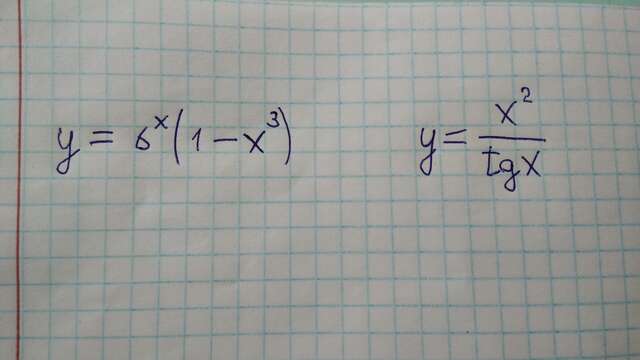 y = 6^x (1 - x^3)
y = x^2 / tgx